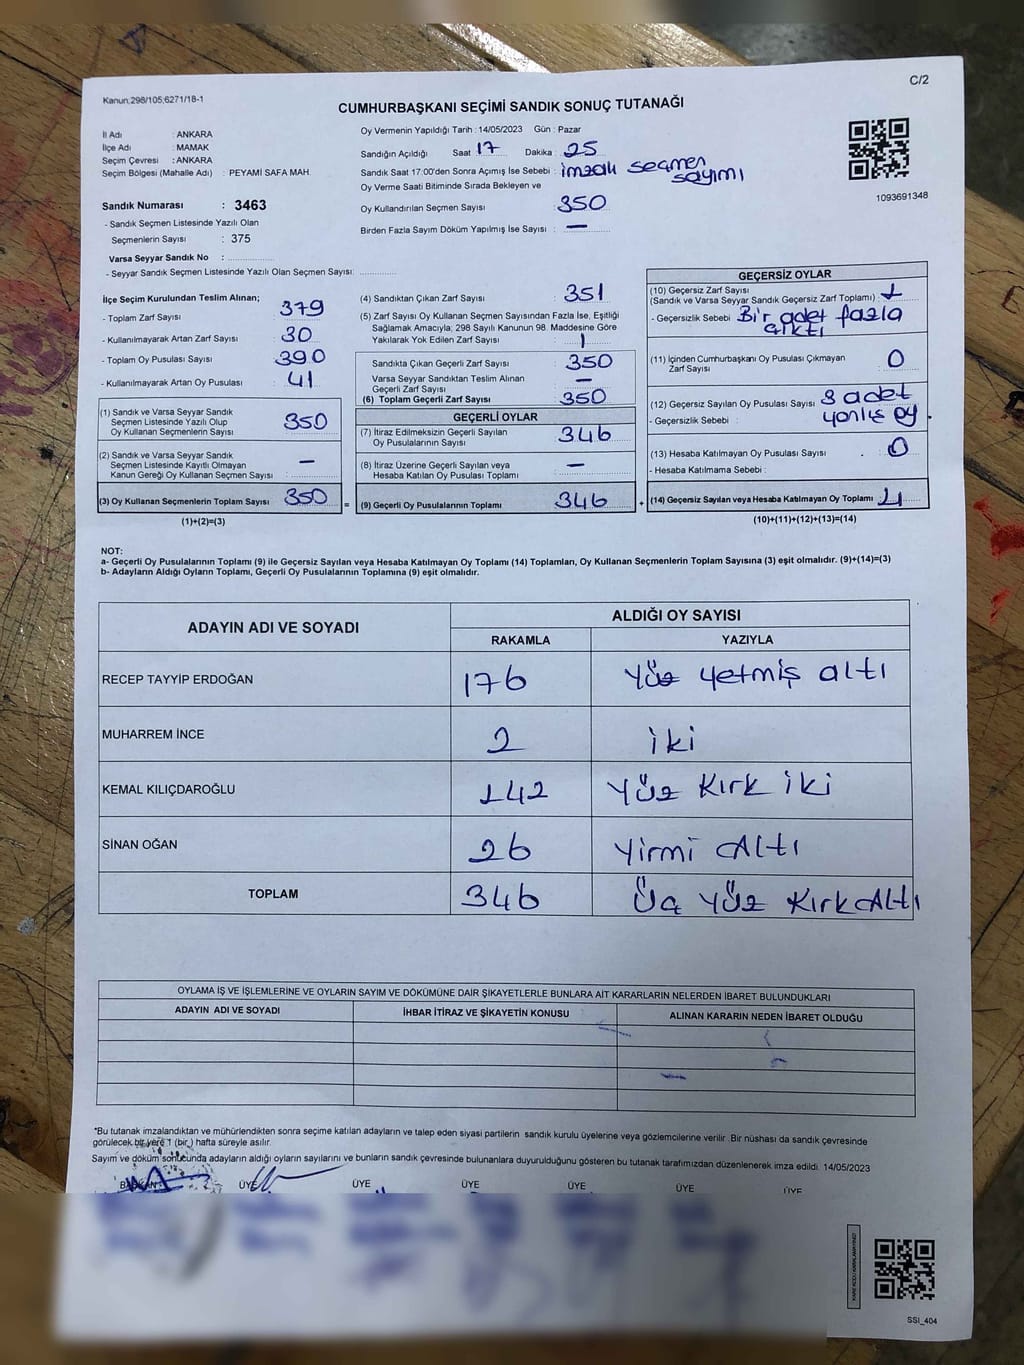 C/2
Kanun:298/105;6271/18-1
CUMHURBAŞKANI SEÇİMİ SANDIK SONUÇ TUTANAĞI
İl Adı : ANKARA
İlçe Adı : MAMAK
Seçim Çevresi : ANKARA
Seçim Bölgesi (Mahalle Adı) : PEYAMİ SAFA MAH.
Sandık Numarası : 3463
- Sandık Seçmen Listesinde Yazılı Olan
Seçmenlerin Sayısı : 375
Varsa Seyyar Sandık No :
- Seyyar Sandık Seçmen Listesinde Yazılı Olan Seçmen Sayısı:
Oy Vermenin Yapıldığı Tarih : 14/05/2023 Gün : Pazar
Sandığın Açıldığı Saat 17 Dakika : 25
Sandık Saat 17:00'den Sonra Açımış İse Sebebi : imzalı seçmen sayımı
Oy Verme Saati Bitiminde Sırada Bekleyen ve
Oy Kullandırılan Seçmen Sayısı : 350
Birden Fazla Sayım Döküm Yapılmış İse Sayısı : —
1093691348
İlçe Seçim Kurulundan Teslim Alınan;
- Toplam Zarf Sayısı : 379
- Kullanılmayarak Artan Zarf Sayısı : 30
- Toplam Oy Pusulası Sayısı : 390
- Kullanılmayarak Artan Oy Pusulası : 41
(1) Sandık ve Varsa Seyyar Sandık
Seçmen Listesinde Yazılı Olup
Oy Kullanan Seçmenlerin Sayısı : 350
(2) Sandık ve Varsa Seyyar Sandık
Seçmen Listesinde Kayıtlı Olmayan
Kanun Gereği Oy Kullanan Seçmen Sayısı : —
(3) Oy Kullanan Seçmenlerin Toplam Sayısı : 350 =
(1)+(2)=(3)
(4) Sandıktan Çıkan Zarf Sayısı : 351
(5) Zarf Sayısı Oy Kullanan Seçmen Sayısından Fazla İse, Eşitliği
Sağlamak Amacıyla; 298 Sayılı Kanunun 98. Maddesine Göre
Yakılarak Yok Edilen Zarf Sayısı : 1
Sandıkta Çıkan Geçerli Zarf Sayısı : 350
Varsa Seyyar Sandıktan Teslim Alınan
Geçerli Zarf Sayısı : —
(6) Toplam Geçerli Zarf Sayısı : 350
GEÇERLİ OYLAR
(7) İtiraz Edilmeksizin Geçerli Sayılan
Oy Pusulalarının Sayısı : 346
(8) İtiraz Üzerine Geçerli Sayılan veya
Hesaba Katılan Oy Pusulası Toplamı : —
(9) Geçerli Oy Pusulalarının Toplamı : 346 +
GEÇERSİZ OYLAR
(10) Geçersiz Zarf Sayısı
(Sandık ve Varsa Seyyar Sandık Geçersiz Zarf Toplamı) : 1
- Geçersizlik Sebebi : Bir adet fazla
çıktı
(11) İçinden Cumhurbaşkanı Oy Pusulası Çıkmayan
Zarf Sayısı : 0
(12) Geçersiz Sayılan Oy Pusulası Sayısı : 3 adet
- Geçersizlik Sebebi : yanlış oy
(13) Hesaba Katılmayan Oy Pusulası Sayısı : 0
- Hesaba Katılmama Sebebi :
(14) Geçersiz Sayılan veya Hesaba Katılmayan Oy Toplamı : 4
(10)+(11)+(12)+(13)=(14)
NOT:
a- Geçerli Oy Pusulalarının Toplamı (9) ile Geçersiz Sayılan veya Hesaba Katılmayan Oy Toplamı (14) Toplamları, Oy Kullanan Seçmenlerin Toplam Sayısına (3) eşit olmalıdır. (9)+(14)=(3)
b- Adayların Aldığı Oyların Toplamı, Geçerli Oy Pusulalarının Toplamına (9) eşit olmalıdır.
ADAYIN ADI VE SOYADI ALDIĞI OY SAYISI
RAKAMLA YAZIYLA
RECEP TAYYİP ERDOĞAN 176 Yüz yetmiş altı
MUHARREM İNCE 2 iki
KEMAL KILIÇDAROĞLU 142 Yüz Kırk iki
SİNAN OĞAN 26 Yirmi Altı
TOPLAM 346 Üç Yüz Kırk Altı
OYLAMA İŞ VE İŞLEMLERİNE VE OYLARIN SAYIM VE DÖKÜMÜNE DAİR ŞİKAYETLERLE BUNLARA AİT KARARLARIN NELERDEN İBARET BULUNDUKLARI
ADAYIN ADI VE SOYADI İHBAR İTİRAZ VE ŞİKAYETİN KONUSU ALINAN KARARIN NEDEN İBARET OLDUĞU
*Bu tutanak imzalandıktan ve mühürlendikten sonra seçime katılan adayların ve talep eden siyasi partilerin sandık kurulu üyelerine veya gözlemcilerine verilir .Bir nüshası da sandık çevresinde
görülecek bir yere 1 (bir ) hafta süreyle asılır.
Sayım ve döküm sonucunda adayların aldığı oyların sayılarını ve bunların sandık çevresinde bulunanlara duyurulduğunu gösteren bu tutanak tarafımızdan düzenlenerek imza edildi. 14/05/2023
BAŞKAN ÜYE ÜYE ÜYE ÜYE ÜYE ÜYE
SSI_404